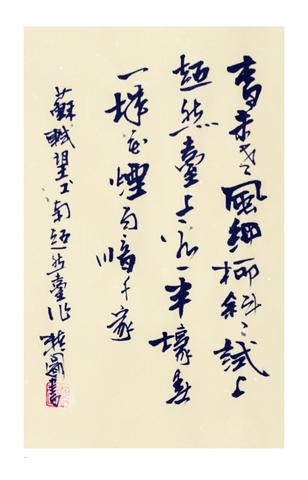 春未老風細柳斜〻試上
超然臺上半壕春
一城花煙雨暗千家
蘇軾望江南超然臺作